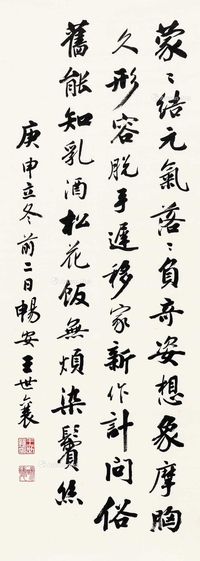 蒙〻结元氣落〻負奇姿想象摩胸
久形容脱手遲移家新作計問俗
舊能知乳酒松花飯無煩染鬢絲
庚申立冬前二日暢安王世襄